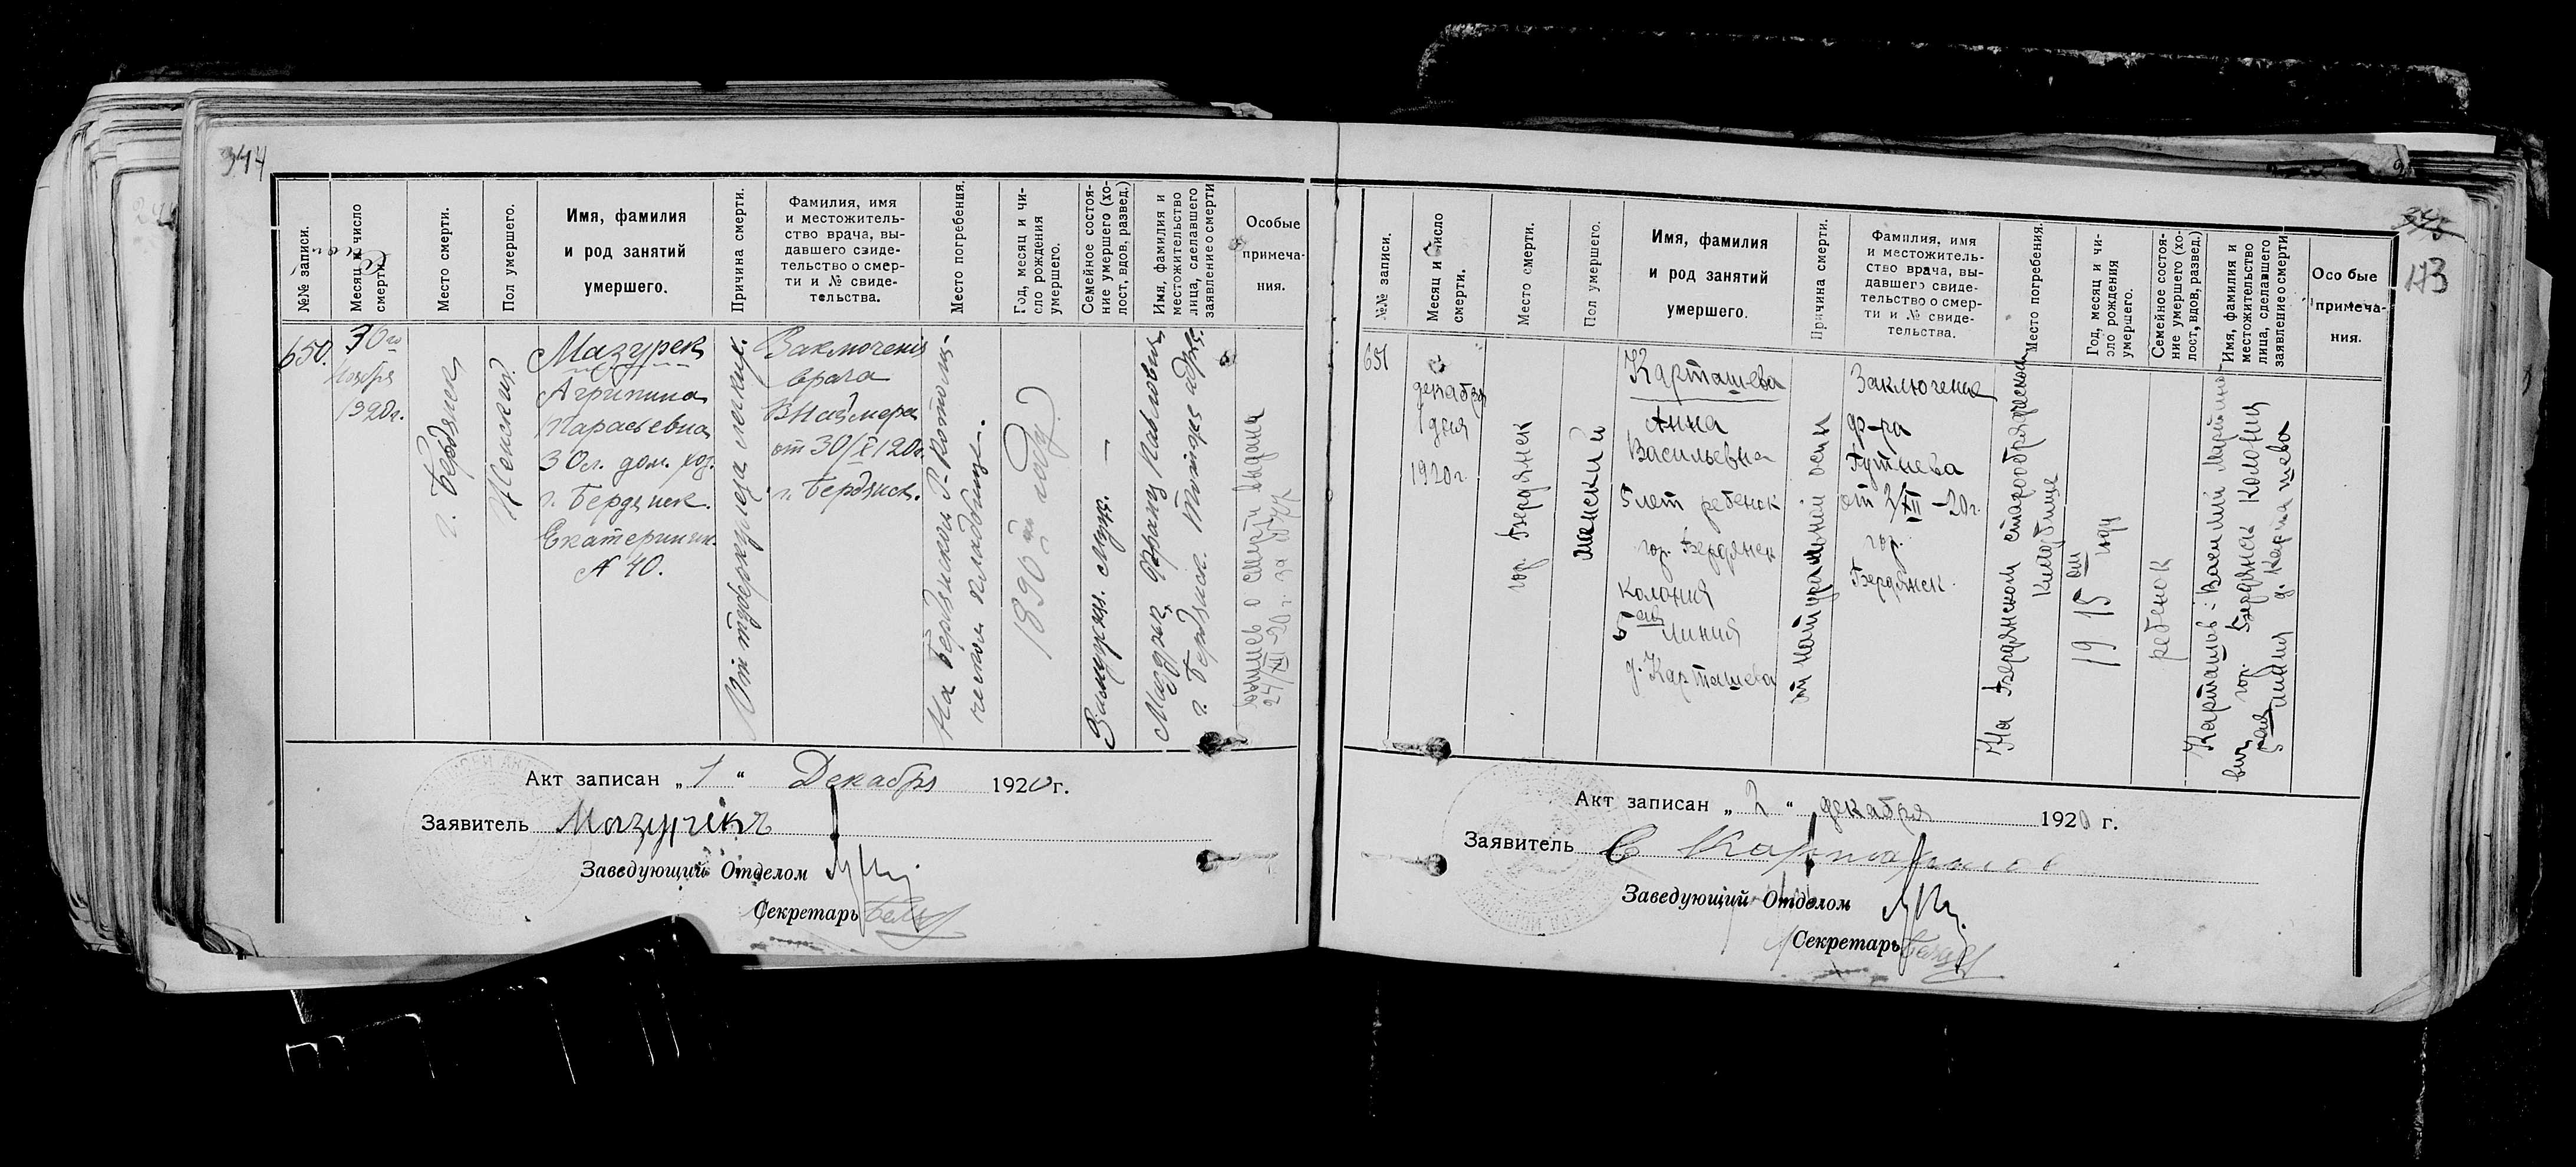 344
№№ записи.
Месяц и число
смерти.
Место смерти.
Пол умершего.
Имя, фамилия
и род занятий
умершего.
Причина смерти.
Фамилия, имя
и местожитель-
ство врача, вы-
давшего свиде-
тельство о смер-
ти и № свиде-
тельства.
Место погребения.
Год, месяц и чи-
сло рождения
умершего.
Семейное состоя-
ние умершего (хо-
лост, вдов, развед.)
Имя, фамилия и
местожительство
лица, сделавшего
заявление о смерти
Особые
примеча-
ния.
650.
30го
Ноября
1920г.
г. Бердянск
Женский
Мазурек
Агрипина
Тарасьевна
30л. дом. хоз.
г. Бердянск.
Екатеринин.
№ 40.
От туберкулеза легких.
Заключение
врача
от 30/XI 20г.
г. Бердянск.
На Бердянском Р-Католи-
ческом кладбище.
1890 году.
Замужн.
Мазурек Франц Павлович
г. Бердянск. тот же адрес.
о смерти выдана
24/XII-20г. за
Акт записан „1“ Декабря 1920г.
Заявитель Мазурекъ
Заведующий Отделом
Секретарь
345
173
№№ записи.
Месяц и число
смерти.
Место смерти.
Пол умершего.
Имя, фамилия
и род занятий
умершего.
Причина смерти.
Фамилия, имя
и местожитель-
ство врача, вы-
давшего свиде-
тельство о смер-
ти и № свиде-
тельства.
Место погребения.
Год, месяц и чи-
сло рождения
умершего.
Семейное состоя-
ние умершего (хо-
лост, вдов, развед.)
Имя, фамилия и
местожительство
лица, сделавшего
заявление о смерти
Особые
примеча-
ния.
651
декабря
1 дня
1920г.
гор. Бердянск
женский
Карташева
Анна
Васильевна
5 лет ребенок
гор. Бердянск
колония
5ая линия
д. Карташева
от натуральной оспы
Заключение
д-ра
Гутнева
от 2/XII-20г.
гор.
Бердянск.
На Бердянском старообрядческом
кладбище
1915ом году
ребенок
Карташов Василий
вич гор. Бердянск колония
5ая линия д. Карташева
Акт записан „2“ декабря 1920 г.
Заявитель В Карташов
Заведующий Отделом
Секретарь